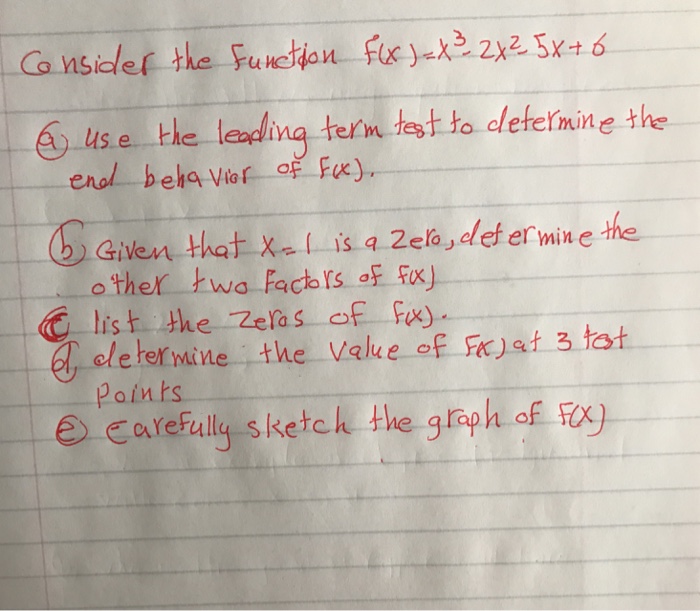 Consider the Function f(x)=x³-2x²-5x+6
ⓐ use the leading term test to determine the
end behavior of F(x).
ⓑ Given that x=1 is a zero, determine the
other two factors of f(x)
ⓒ list the zeros of f(x).
ⓓ determine the value of F(x) at 3 test
points
ⓔ carefully sketch the graph of F(x)